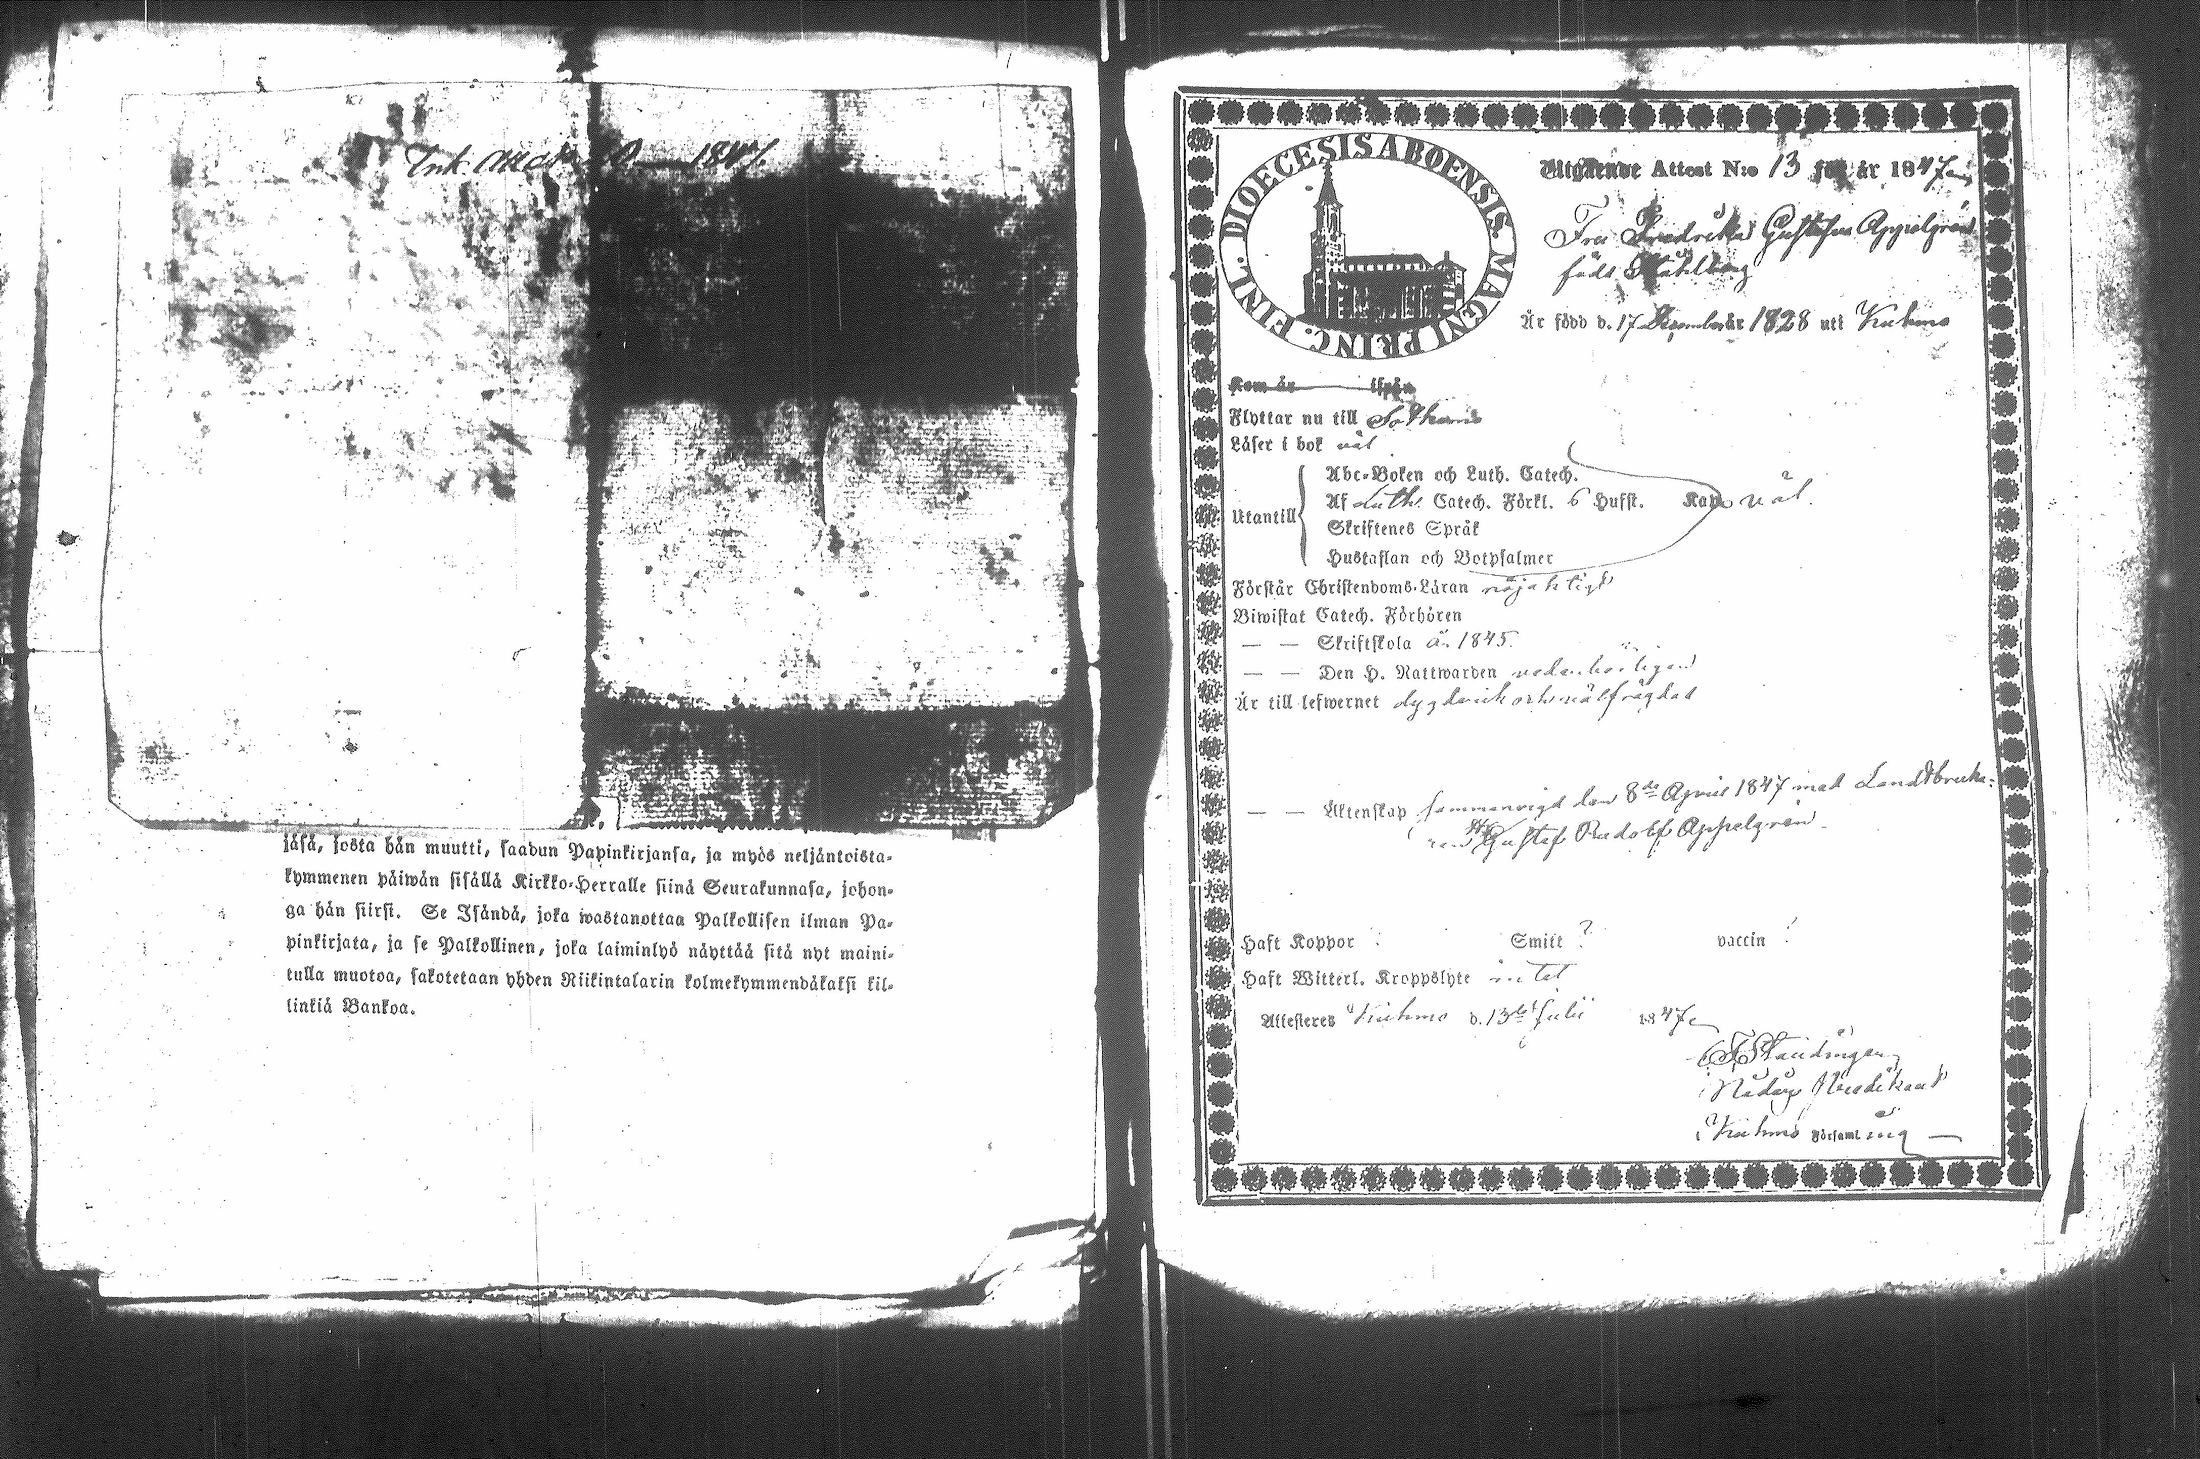 Ink. 1847.
jåså, josta hån muutti, saadun Papinkirjansa, ja myös neljåntoista-
kymmenen påiwån sisållå Kirkko-Herralle siinå Seurakunnasa, johon-
ga hån siirsi. Se Isåndå, joka wastanottaa Palkollisen ilman Pa-
pinkirjata, ja se Palkollinen, joka laiminlyö nåyttåå sitå nyt maini-
tulla muotoa, sakotetaan yhden Riikintalarin kolmekymmendåkaksi kil-
linkiå Bankoa.
DIOECESIS ABOENSIS. MAGNI PRINC. FINL.
Utgående Attest N:o 13 för år 1847
Fru Fredrika Gustafva Appelgrén
född Ståhlberg
Är född d. 17 December år 1828 uti Kuhmo
Kom år ifrån
Flyttar nu till Sotkamo
Låser i bok väl
Utantill
Abc-Boken och Luth. Catech.
Af Luth. Catech. Förkl. 6 Hufst. Kap. väl.
Skriftenes Språk
Hustaflan och Botpsalmer
Förstår Christendoms-Läran nöjaktigt
Biwistat Catech. Förhören
— — Skriftskola å. 1845.
— — Den H. Nattwarden vederbörligen
Är till lefwernet dygderik och välfrägdad
— — Äktenskap sammanvigd den 8de April 1847 med Landtbruka-
ren Gustaf Rudolf Appelgrén.
Haft Koppor ? Smitt ? vaccin ?
Haft Witterl. Kroppslyte intet
Attesteres Kuhmo d. 13de Julii 1847
Nådårs Predikant
Kuhmo Församling